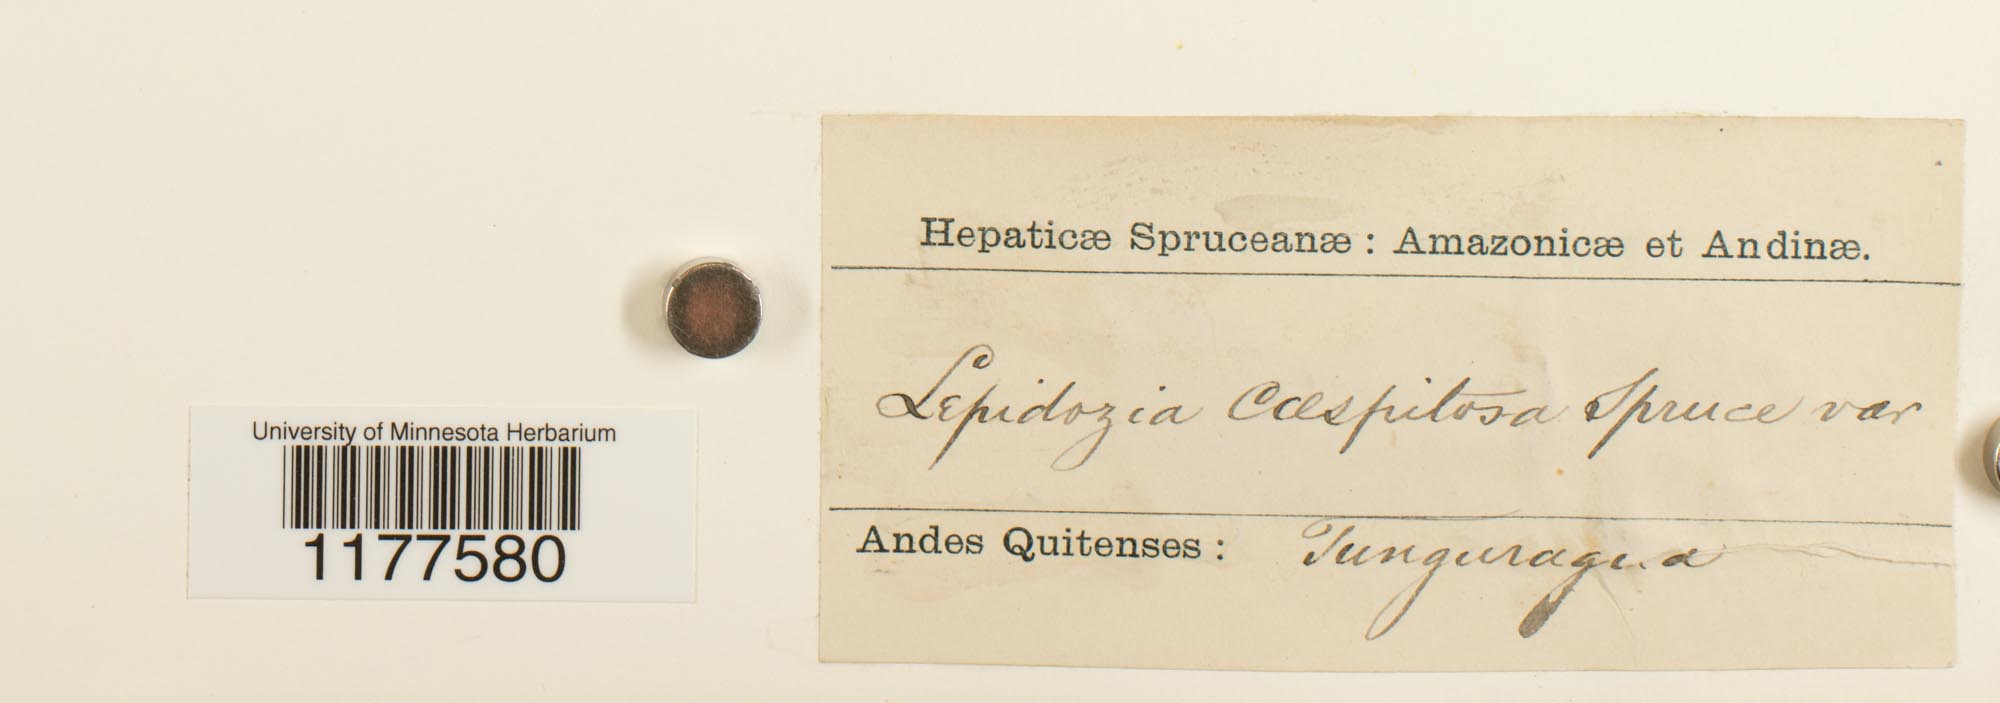 University of Minnesota Herbarium
1177580
Hepaticæ Spruceanæ : Amazonicæ et Andinæ.
Lepidozia cæspitosa Spruce var
Andes Quitenses : Tunguragua